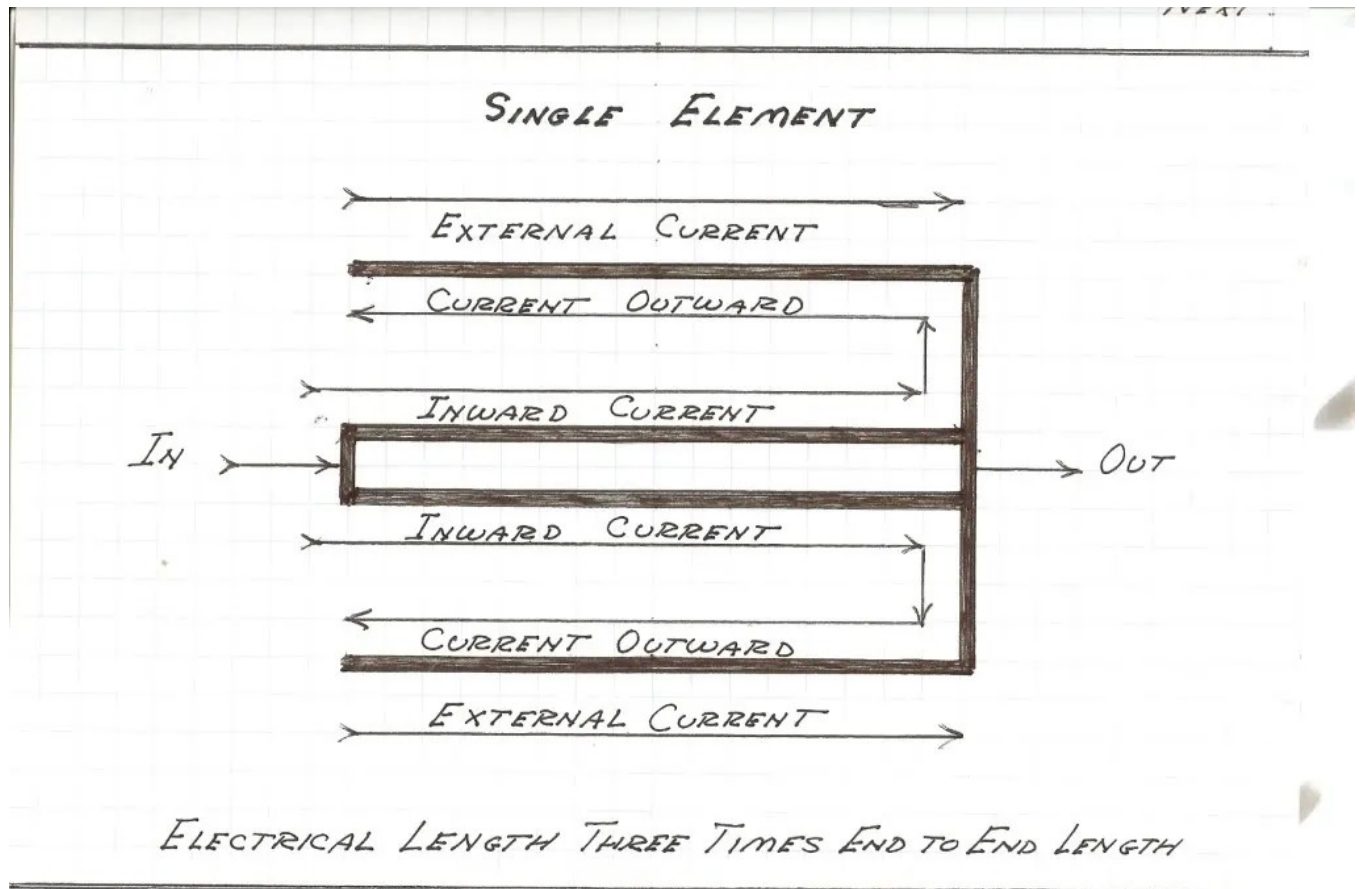 SINGLE ELEMENT
EXTERNAL CURRENT
CURRENT OUTWARD
INWARD CURRENT
IN
OUT
INWARD CURRENT
CURRENT OUTWARD
EXTERNAL CURRENT
ELECTRICAL LENGTH THREE TIMES END TO END LENGTH